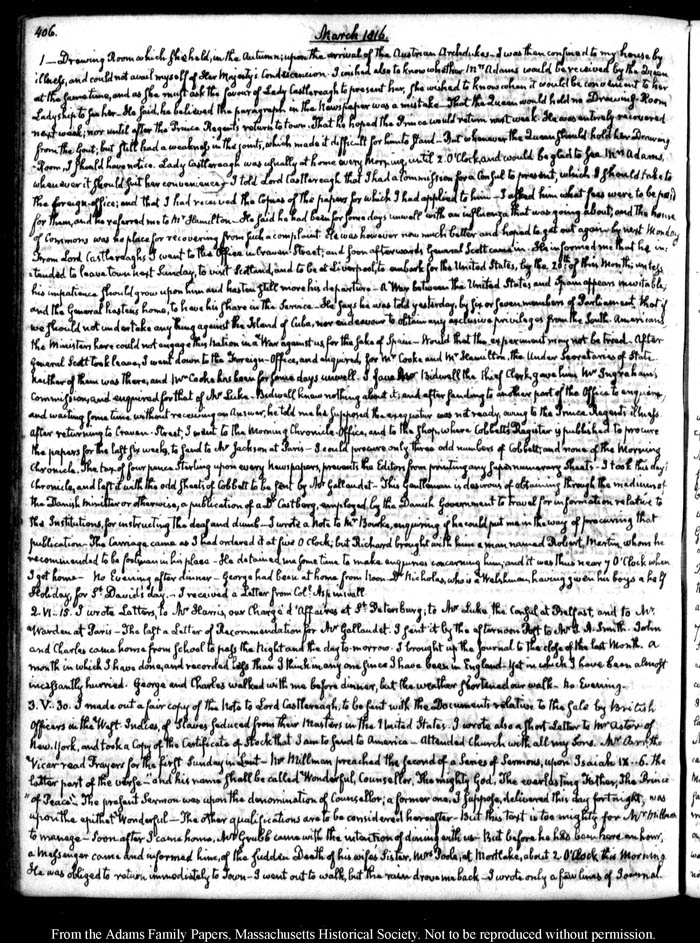 406.
March 1816.
1— Drawing Room which She held, in the Autumn, upon the arrival of the Austrian Archdukes— I was then confined to my house by
illness, and could not avail myself of Her Majesty's Condescension— I wished also to know whether Mrs Adams would be received by the Queen
at the same time, and as She must ask the favour of Lady Castlereagh to present her, She wished to know when it would be convenient to her
Ladyship to see her— He said, he believed the paragraph in the Newspaper was a mistake— That the Queen would hold no Drawing-Room
next week; nor until after the Prince Regent's return to town. That he hoped the Prince would return next week. He was entirely recovered
from the Gout; but still had a weakness in the joints, which made it difficult for him to Stand— But whenever the Queen should hold her Drawing
-Room, I should have notice. Lady Castlereagh was usually at home every Morning, until 2 O'Clock, and would be glad to see Mrs Adams,
whenever it should suit her convenience— I told Lord Castlereagh that I had a Commission for a Consul to present, which I should take to
the foreign office; and that I had received the Copies of the papers for which I had applied to him— I asked him what fees were to be paid
for them, and he referred me to Mr Hamilton— He said he had been for some days unwell with an influenza that was going about; and the house
of Commons was no place for recovering from such a complaint. He was however now much better and hoped to get out again by next Monday
From Lord Castlereagh's I went to the Office in Craven-Street; and soon afterwards General Scott came in. He informed me that he in-
-tended to leave town next Sunday, to visit Scotland, and to be at Liverpool, to embark for the United States, by the 20th of this Month; unless
his impatience should grow upon him and hasten still more his departure— A War between the United States and Spain appears inevitable,
and the General hastens home, to have his share in the Service— He says he was told yesterday, by six or seven members of Parliament, that if
we should not undertake any thing against the Island of Cuba, nor endeavour to obtain any exclusive privileges from the South-Americans
the Ministers here could not engage this Nation in a War against us for the sake of Spain— Would that the experiment may not be tried. After
General Scott took leave, I went down to the Foreign-Office, and enquired, for Mr Cooke and Mr Hamilton, the Under Secretaries of State.
Neither of them was there, and Mr Cooke has been for some days unwell. I saw Mr Bidwell the Chief Clerk, gave him Mr Ingraham's
Commission, and enquired for that of Mr Luke— Bidwell knew nothing about it; and after sending to another part of the Office to enquire,
and waiting some time without receiving an Answer, he told me he supposed the exequatur was not ready, owing to the Prince Regent's illness.
After returning to Craven-Street, I went to the Morning Chronicle Office, and to the shop, where Cobbett's Register is published to procure
the papers for the last six weeks, to send to Mr Jackson at Paris— I could procure only three odd numbers of Cobbett; and none of the Morning
Chronicle. The tax of four pence Sterling upon every Newspaper, prevents the Editors from printing any Supernumerary Sheets— I took this day's
Chronicle, and left it with the odd Sheets of Cobbett to be sent by Mr Gallaudet— This Gentleman is desirous of obtaining through the medium of
the Danish Minister or otherwise, a publication of a Dr Castberg, employed by the Danish Government to travel for information relative to
the Institutions, for instructing the deaf and dumb— I wrote a Note to Mr Bourke, enquiring if he could put me in the way of procuring that
publication— The Carriage came as I had ordered it at five O'Clock; but Richard brought with him a man named Robert Martin, whom he
recommended to be footman in his place— He detained me some time to make enquiries concerning him; and it was thus near 7 O'Clock when
I got home— No Evening after dinner— George had been at home from Noon. Dr Nicholas, who is a Welshman, having given his boys a half
Holiday, for St David's day.— I received a Letter from Coll. Aspinwall.
2. VI-15. I wrote Letters, to Mr Harris, our Chargé d'Affaires at St Petersburg; to Mr Luke the Consul at Belfast, and to Mr.
Warden at Paris— The last a Letter of Recommendation for Mr Gallaudet. I sent it by the afternoon Post to Mr J. A. Smith. John
and Charles came home from School to pass the Night and the day to-morrow. I brought up the Journal to the close of the last Month. A
month in which I have done, and recorded less than I think in any one since I have been in England— Yet in which I have been almost
incessantly hurried. George and Charles walked with me before dinner, but the weather shortened our walk— No Evening.
3. V-30. I made out a fair copy of the Note to Lord Castlereagh, to be sent with the Documents relative to the Sale by British
Officers in the West-Indies, of Slaves seduced from their Masters in the United States. I wrote also a short Letter to Mr Astor of
New-York, and took a Copy of the Certificate of Stock that I am to send to America— Attended Church with all my Sons. Mr the
Vicar read Prayers for the first Sunday in Lent— Mr Millman preached the second of a Series of Sermons, upon Isaiah IX.-6. the
latter part of the verse— "and his name shall be called Wonderful, Counsellor, The mighty God, The everlasting Father, The Prince
"of Peace"— The present Sermon was upon the denomination of Counsellor; a former one, I suppose, delivered this day fortnight, was
upon the epithet Wonderful— The other qualifications are to be considered hereafter— But this text is too mighty for Mr Millman
to manage— Soon after I came home, Mr Grubb came with the intention of dining with us— But before he had been here an hour,
a Messenger came and informed him, of the sudden Death of his wife's Sister, Mrs Toole, at Mortlake, about 2 O'Clock this Morning
He was obliged to return immediately to Town— I went out to walk, but the rain drove me back— I wrote only a few lines of Journal.
From the Adams Family Papers, Massachusetts Historical Society. Not to be reproduced without permission.